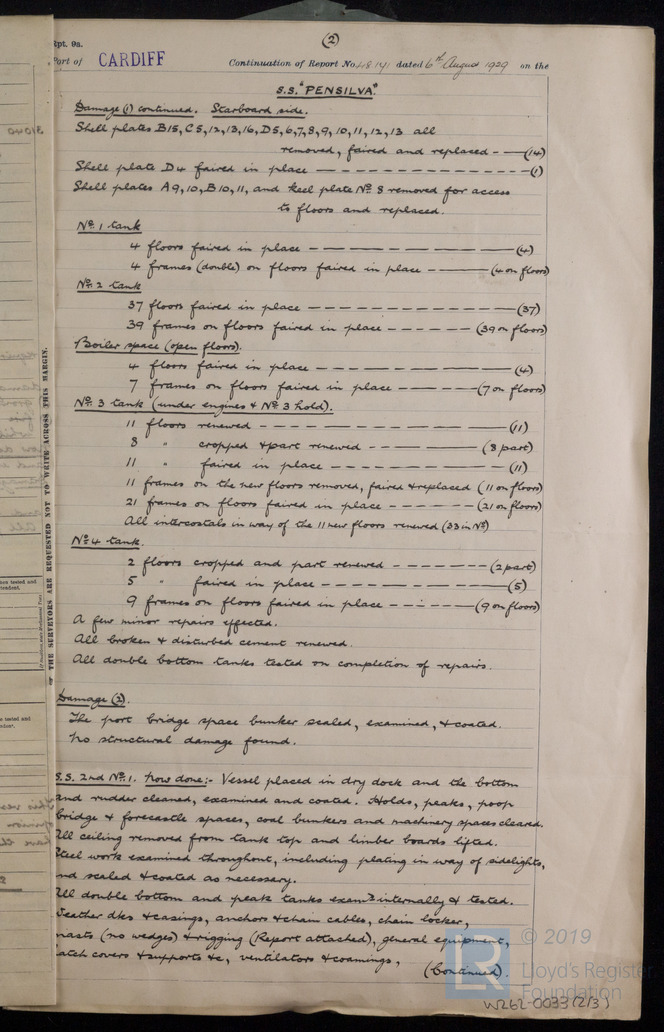 (2)
Rpt. 9a.
Port of CARDIFF Continuation of Report No. 48141 dated 6th August 1929 on the
S.S. "PENSILVA."
Damage (1) continued. Starboard side.
Shell plates B15, C5, 12, 13, 16, D5, 6, 7, 8, 9, 10, 11, 12, 13 all
removed, faired and replaced - — (14)
Shell plate D4 faired in place — — — — — — — (1)
Shell plates A9, 10, B10, 11, and keel plate No. 8 removed for access
to floors and replaced.
No. 1 tank
4 floors faired in place — — — — — (4)
4 frames (double) on floors faired in place — — — (4 on floors)
No. 2 tank
37 floors faired in place — — — — — (37)
39 frames on floors faired in place — — — — (39 on floors)
Boiler space (open floors).
4 floors faired in place — — — — — (4)
7 frames on floors faired in place — — — — (7 on floors)
No. 3 tank (under engines & No. 3 hold).
11 floors renewed — — — — — (11)
8 " cropped & part renewed — — — — (8 part)
11 " faired in place — — — — — (11)
11 frames on the new floors removed, faired & replaced (11 on floors)
21 frames on floors faired in place — — — — (21 on floors)
All intercostals in way of the 11 new floors renewed (33 in No)
No. 4 tank.
2 floors cropped and part renewed — — — — (2 part)
5 " faired in place — — — — — (5)
9 frames on floors faired in place — — — — (9 on floors)
A few minor repairs effected.
All broken & disturbed cement renewed.
All double bottom tanks tested on completion of repairs.
Damage (2).
The port bridge space bunker scaled, examined, & coated.
No structural damage found.
S.S. 2nd No. 1. now done:- Vessel placed in dry dock and the bottom
and rudder cleaned, examined and coated. Holds, peaks, poop
bridge & forecastle spaces, coal bunkers and machinery spaces cleared.
All ceiling removed from tank top and limber boards lifted.
Steel work examined throughout, including plating in way of sidelights,
and scaled & coated as necessary.
All double bottom and peak tanks examd internally & tested.
Weather dks & casings, anchors & chain cables, chain locker,
masts (no wedges) & rigging (Report attached), general equipment,
hatch covers & supports &c, ventilators & coamings,
(Continued).
THE SURVEYORS ARE REQUESTED NOT TO WRITE ACROSS THIS MARGIN.
LR © 2019
Lloyd's Register
Foundation
W262-0033(2/3)